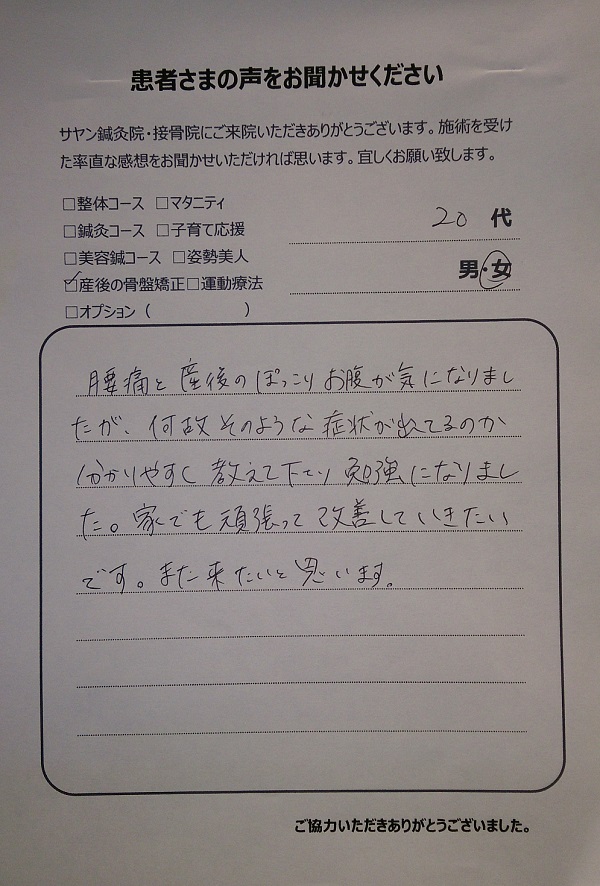 患者さまの声をお聞かせください
サヤン鍼灸院・接骨院にご来院いただきありがとうございます。施術を受け
た率直な感想をお聞かせいただければ思います。宜しくお願い致します。
□整体コース □マタニティ
□鍼灸コース □子育て応援
20 代
□美容鍼コース □姿勢美人
男・女
☑産後の骨盤矯正□運動療法
□オプション ( )
腰痛と産後のぽっこりお腹が気になりまし
たが、何故そのような症状が出てるのか
分かりやすく教えて下さり勉強になりまし
た。家でも頑張って改善していきたい
です。また来たいと思います。
ご協力いただきありがとうございました。